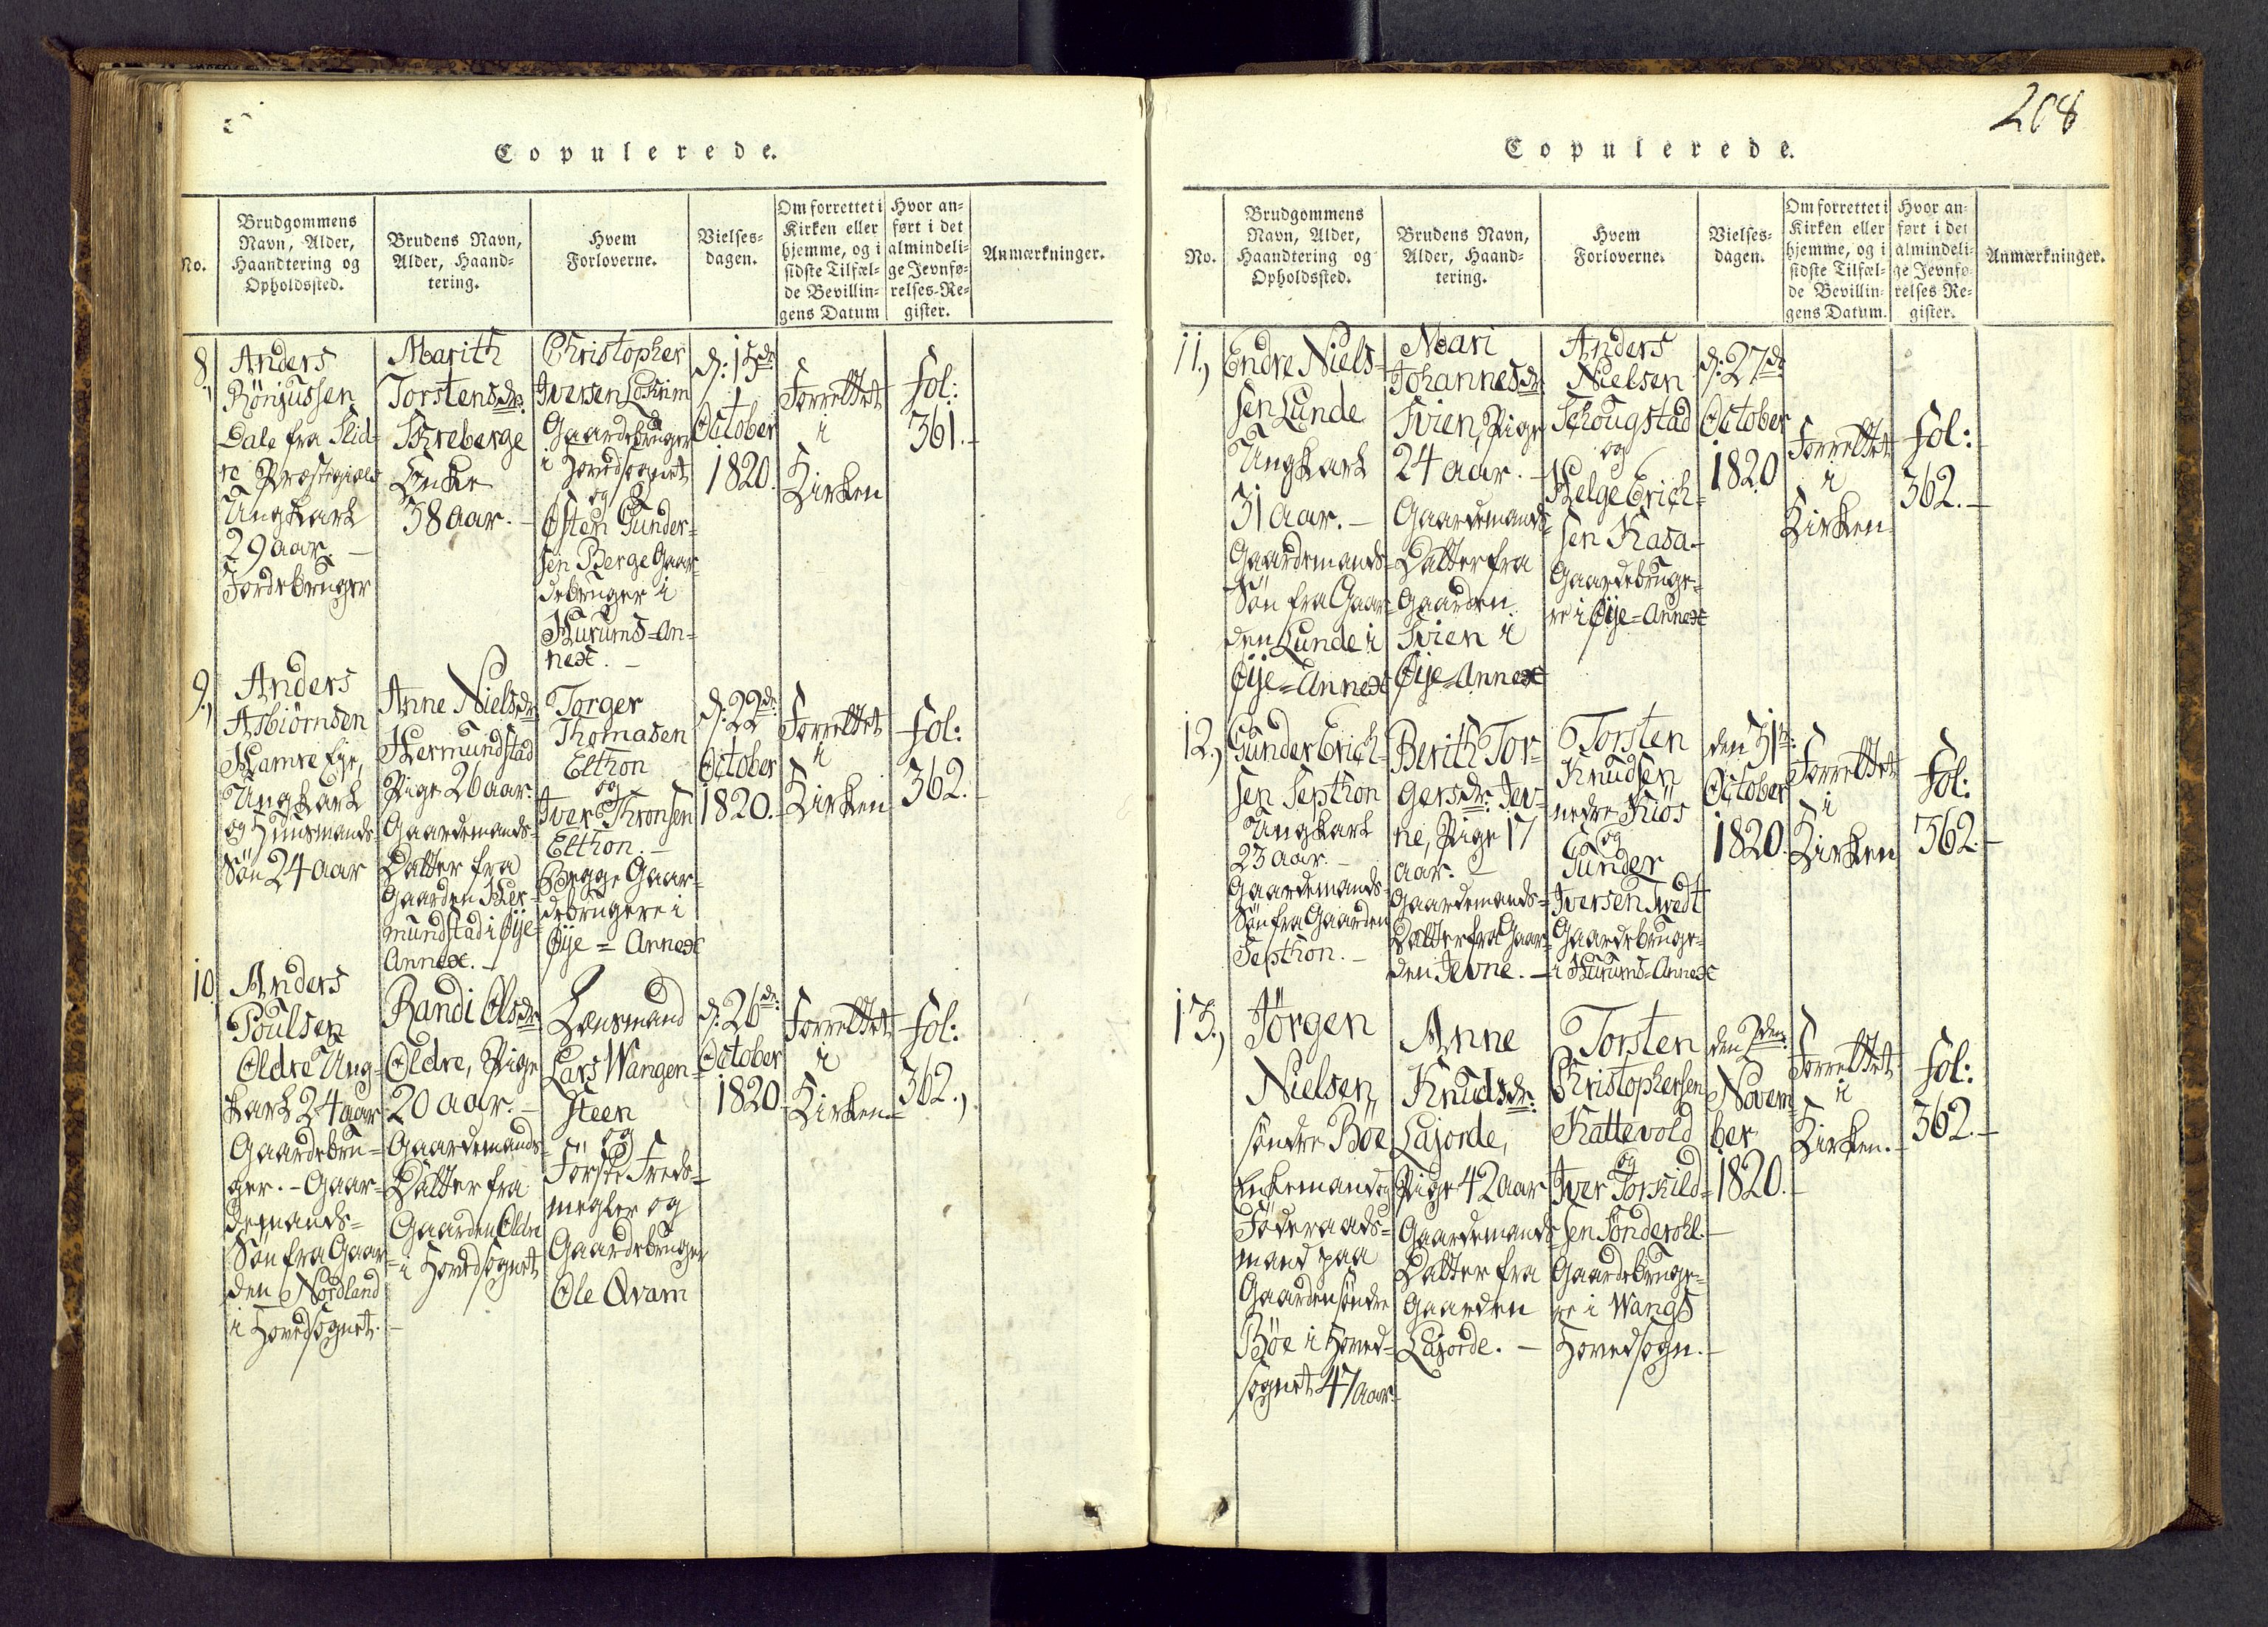 Copulerede.
No.
Brudgommens
Navn, Alder,
Haandtering og
Opholdssted.
Brudens Navn,
Alder, Haand-
tering.
Hvem
Forloverne.
Vielses-
dagen.
Om forrettet i
Kirken eller
hjemme, og i
sidste Tilfæl-
de Bevillin-
gens Datum
Hvor an-
ført i det
almindeli-
ge Jevnfø-
relses-Re-
gister.
Anmærkninger.
8.,
Anders
Dale fra Slid-
re Præstegield
Ungkarl
29 aar. –
Jordebruger
Marith
Torstensdr:
Skreberge
Enke
38 aar. –
Christopher
Iversen
Gaardebruger
i Hovedsognet
og
Østen Gunder-
sen Berge Gaar-
debruger i
Hurums=An-
nex. –
d: 15de
October
1820.
Forrettet
i
Kirken
fol:
361. –
9.,
Anders
Asbiörnsen
Hamre Eje,
Ungkarl
og Huusmands-
Søn 24 aar
Anne Nielsdr:
Hermundstad
Pige 26 aar.
Gaardemands-
Datter fra
Gaarden Her-
mundstad i Øje-
Annex. –
Torger
Thomasen
Elthon
og
Iver Thronsen
Elthon. –
Begge Gaar-
debrugere i
Øÿe = Annex
d: 22de
October
1820. –
Forrettet
i
Kirken
fol:
362. –
10.,
Anders
Poulsen
Oldre Ung-
karl 24 aar
Gaardebru-
ger. – Gaar-
demands-
Søn fra Gaar-
den Nordland
i Hovedsognet. –
Randi Olsdr:
Oldre, Pige
20 aar. –
Gaardemands-
Datter fra
Gaarden Oldre
i Hovedsognet
Lensmand
Lars Wangen-
steen
og
Første Freds-
megler og
Gaardebruger
Ole Qvam
d: 26de:
October
1820.
Forrettet
i
Kirken –
fol:
362.,
208
Copulerede.
No.
Brudgommens
Navn, Alder,
Haandtering og
Opholdssted.
Brudens Navn,
Alder, Haand-
tering.
Hvem
Forloverne.
Vielses-
dagen.
Om forrettet i
Kirken eller
hjemme, og i
sidste Tilfæl-
de Bevillin-
gens Datum.
Hvor an-
ført i det
almindeli-
ge Jevnfø-
relses Re-
gister.
Anmærkninger.
11.,
Endre Niels-
sen Lunde
Ungkarl
31 aar. –
Gaardemands-
Søn fra Gaar-
den Lunde i
Øÿe=Annex
Mari
Johannesdr:
Tvien, Pige
24 aar. –
Gaardemands-
Datter fra
Gaarden
Tvien i
Øÿe=Annex
Anders
Nielsen
Schougstad
og
Helge Erich-
sen Kasa. –
Gaardebruge-
re i Øÿe=Annex
d: 27de
October
1820
Forrettet
i
Kirken
fol:
362. –
12.,
Gunder Erich-
sen Septhon
Ungkarl
23 aar. –
Gaardemands-
Søn fra Gaarden
Septhon. –
Berith Tor-
gersdr: Jev-
ne, Pige 17
aar. –
Gaardemands-
Datter fra Gaar-
den Jevne. –
Torsten
Knudsen
nedre Kiös
og
Gunder
Iversen Twedt
Gaardebruge-
i Hurums=Annex
den 31te:
October
1820.
Forrettet
i
Kirken
fol:
362. –
13.,
Jörgen
Nielsen
søndre Böe
Enkemand og
Føderaads-
mand paa
Gaarden søndre
Böe i Hoved-
sognet 47 aar. –
Anne
Knudsdr:
Lajorde,
Pige 42 aar
Gaardemands
Datter fra
Gaarden
Lajorde. –
Torsten
Christophersen
Kattevold
og
Iver Torkild-
sen Sönderohl. –
Gaardebruge-
re i Wangs
Hovedsogn. –
den 2den:
Novem-
ber
1820. –
Forrettet
i
Kirken. –
fol:
362. –